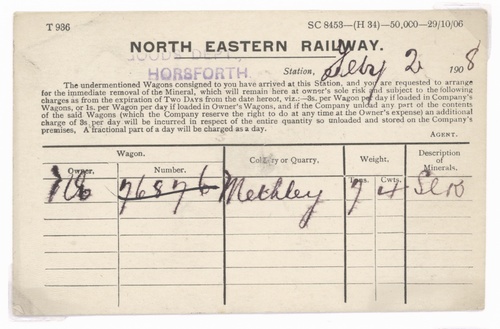 T 936 SC 8453—(H 34)—50,000—29/10/06
NORTH EASTERN RAILWAY.
GOODS DEPT
HORSFORTH
Station, Feby 2 1908
The undermentioned Wagons consigned to you have arrived at this Station, and you are requested to arrange
for the immediate removal of the Mineral, which will remain here at owner's sole risk and subject to the following
charges as from the expiration of Two Days from the date hereof, viz.:—3s. per Wagon per day if loaded in Company's
Wagons, or 1s. per Wagon per day if loaded in Owner's Wagons, and if the Company unload any part of the contents
of the said Wagons (which the Company reserve the right to do at any time at the Owner's expense) an additional
charge of 3s. per day will be incurred in respect of the entire quantity so unloaded and stored on the Company's
premises. A fractional part of a day will be charged as a day.
AGENT.
Wagon. Colliery or Quarry. Weight. Description of Minerals.
Owner. Number. Tons. Cwts.
76876 Methley 7 4